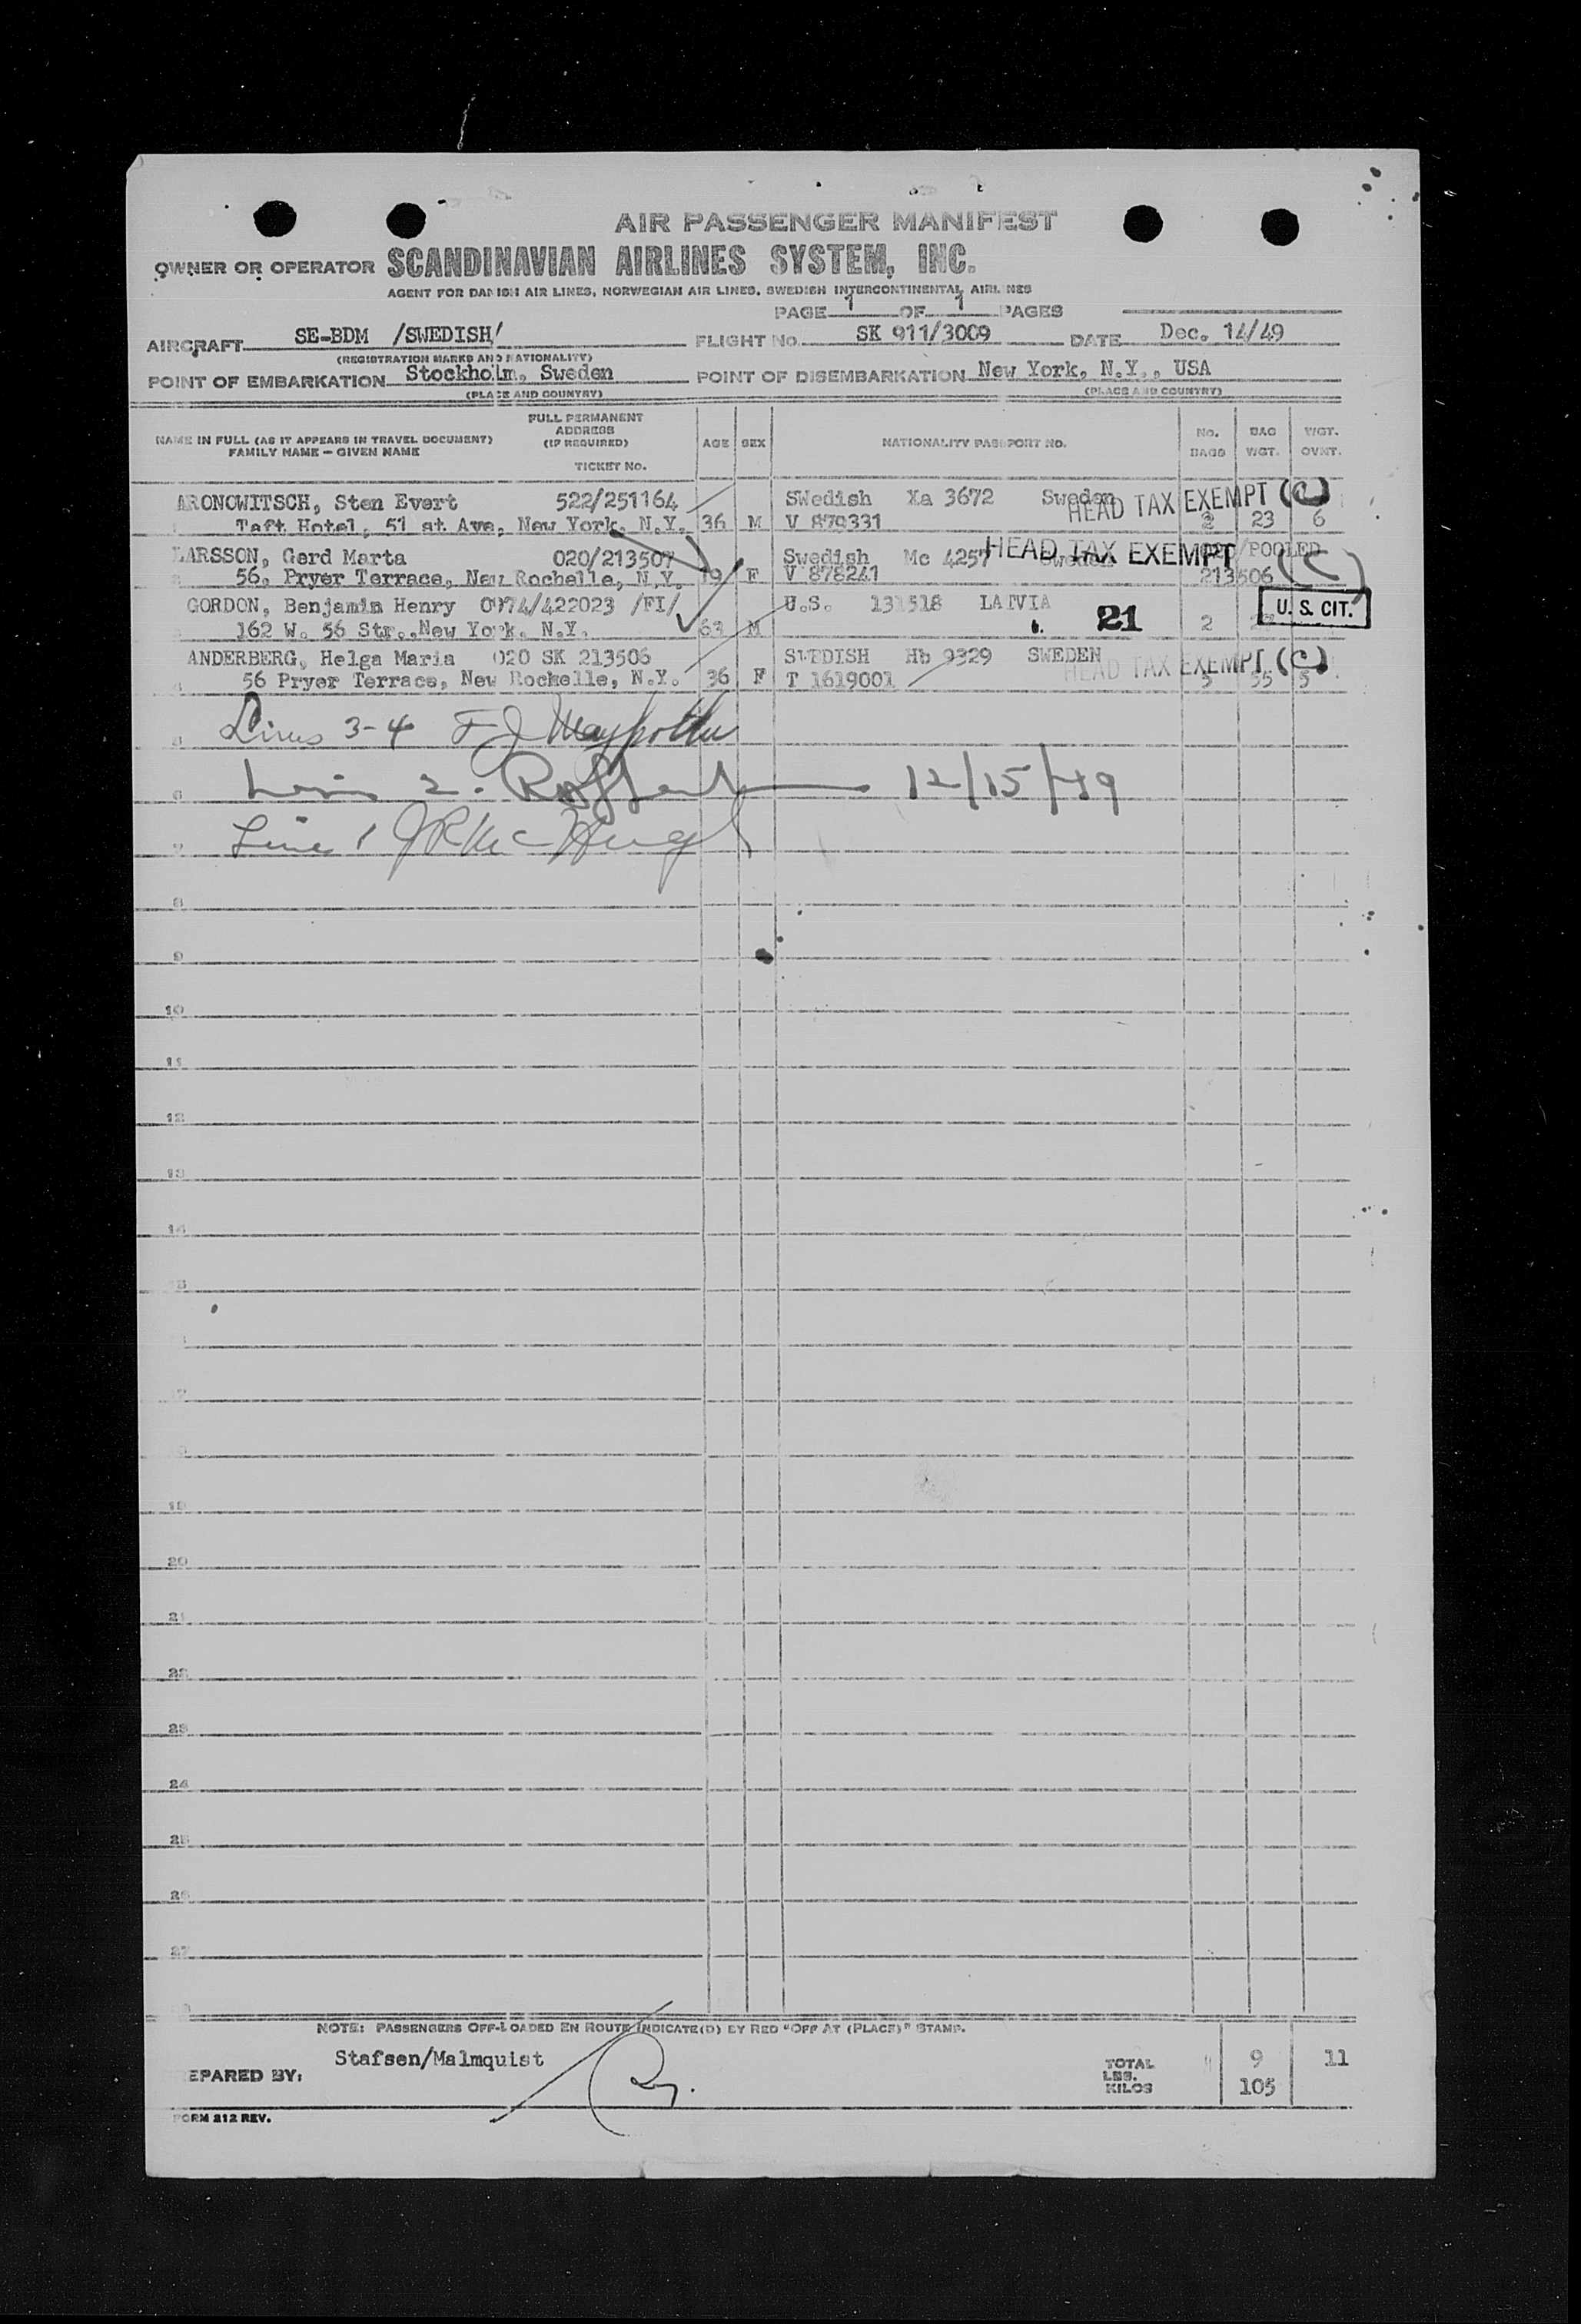 AIR PASSENGER MANIFEST
OWNER OR OPERATOR SCANDINAVIAN AIRLINES SYSTEM, INC.
AGENT FOR DANISH AIR LINES, NORWEGIAN AIR LINES, SWEDISH INTERCONTINENTAL AIRLINES
PAGE 1 OF 1 PAGES
AIRCRAFT SE-BDM /SWEDISH/ FLIGHT NO. SK 911/3009 DATE Dec. 14/49
(REGISTRATION MARKS AND NATIONALITY)
POINT OF EMBARKATION Stockholm, Sweden POINT OF DISEMBARKATION New York, N.Y., USA
(PLACE AND COUNTRY) (PLACE AND COUNTRY)
NAME IN FULL (AS IT APPEARS IN TRAVEL DOCUMENT) FAMILY NAME - GIVEN NAME FULL PERMANENT ADDRESS (IF REQUIRED) TICKET NO. AGE SEX NATIONALITY PASSPORT NO. NO. BAGS BAG WGT. WGT. OVNT.
ARONOWITSCH, Sten Evert 522/251164 SWedish Xa 3672 Sweden HEAD TAX EXEMPT (C)
1 Taft Hotel, 51 st Ave, New York. N.Y. 36 M V 879331 2 23 6
LARSSON, Gerd Marta 020/213507 Swedish Mc 4257 Sweden HEAD TAX EXEMPT /POOLED (C)
2 56. Pryer Terrace, New Rochelle, N.Y. 19 F V 878241 213506
GORDON, Benjamin Henry 0974/422023 /FI/ U.S. 131518 LATVIA U. S. CIT.
3 162 W. 56 Str., New York. N.Y. 63 M 21 2
ANDERBERG, Helga Maria 020 SK 213506 SWEDISH Hb 9329 SWEDEN HEAD TAX EXEMPT (C)
4 56 Pryer Terrace, New Rochelle, N.Y. 36 F T 1619001 5 55 5
Lines 3-4 F J
6 2. 12/15/49
7 Line 1 JR McHugh
8
9
10
11
12
13
14
15
17
19
20
21
22
23
24
25
26
27
NOTE: PASSENGERS OFF-LOADED EN ROUTE INDICATE(D) BY RED "OFF AT (PLACE)" STAMP.
EPARED BY: Stafsen/Malmquist TOTAL LBS. KILOS 9 105 11
FORM 212 REV.